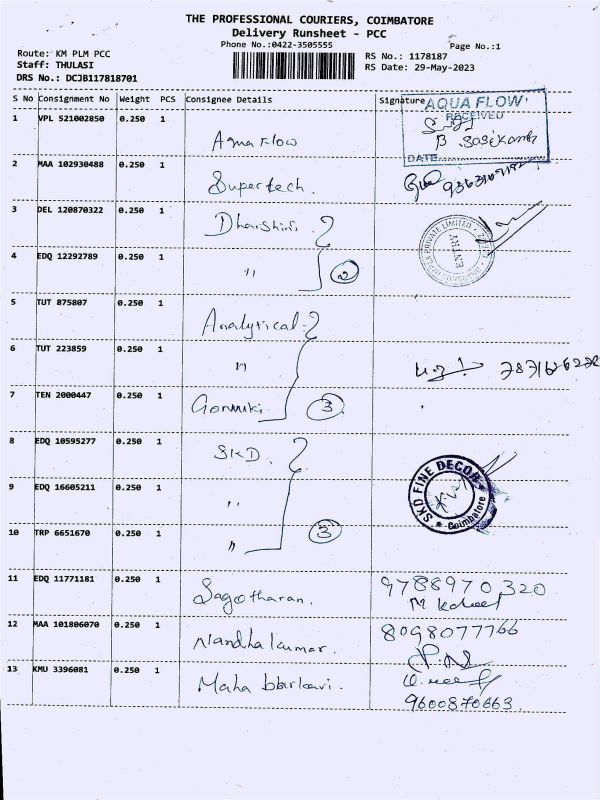 THE PROFESSIONAL COURIERS, COIMBATORE
Delivery Runsheet - PCC
Phone No.:0422-3505555
Page No.:1
Route: KM PLM PCC
Staff: THULASI
DRS No.: DCJB117818701
RS No.: 1178187
RS Date: 29-May-2023
S No Consignment No Weight PCS Consignee Details Signature
AQUA FLOW
RECEIVED
1 VPL 521002850 0.250 1 Aqua Flow
B. Sasikanth
DATE
2 MAA 102930488 0.250 1 Supertech.
3 DEL 120870322 0.250 1 Dharshini
PRIVATE LIMITED
ENTRY
4 EDQ 12292789 0.250 1 " 2
5 TUT 875807 0.250 1 Analytical
6 TUT 223859 0.250 1 "
7 TEN 2000447 0.250 1 3
8 EDQ 10595277 0.250 1 SKD.
SKD FINE DECOR
Coimbatore
9 EDQ 16605211 0.250 1 "
10 TRP 6651670 0.250 1 " 3
11 EDQ 11771181 0.250 1 Sagotharan. 9788970320
12 MAA 101806070 0.250 1 Nandhakumar. 8098077766
13 KMU 3396081 0.250 1 Maha
9600870663.